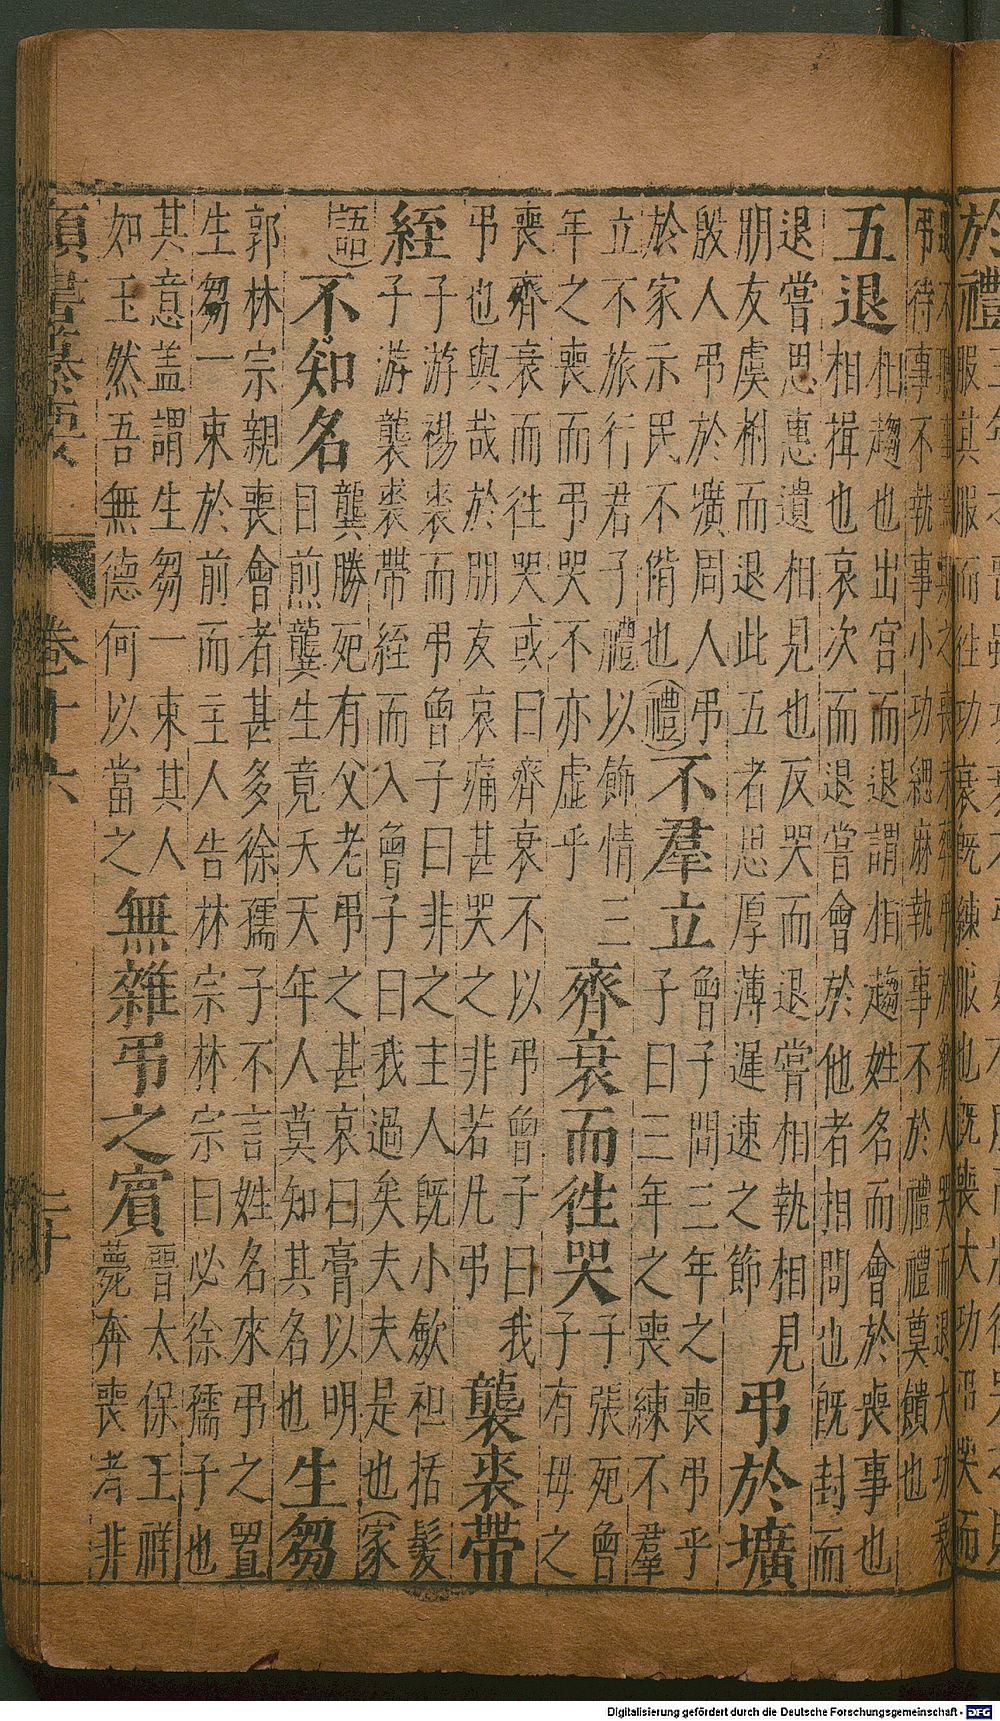 弔待事不執事小功緦麻執事不於禮禮奠饋也
五退
相趨也出宮而退謂相趨姓名而會於喪事也
相揖也哀次而退當會於他者相問也既封而
退嘗思惠遺相見也反哭而退嘗相執相見
朋友虞祔而退此五者思厚薄遲速之節
弔於壙
殷人弔於壙周人弔
於家示民不偝也(禮)
不羣立
曾子問三年之喪弔乎
子曰三年之喪練不羣
立不旅行君子禮以飾情三
年之喪而弔哭不亦虛乎
齊衰而徃哭
子張死曾
子有母之
喪齊衰而往哭或曰齊衰不以弔曾子曰我
弔也與哉於朋友哀痛甚哭之非若凡弔
襲裘帶
絰
子游裼裘而弔曾子曰非之主人既小歛袒括髮
子游襲裘帶絰而入曾子曰我過矣夫夫是也(家
語)
不知名
龔勝死有父老弔之甚哀曰膏以明
自煎龔生竟夭天年人莫知其名也
生芻
郭林宗親喪會者甚多徐孺子不言姓名來弔之置
生芻一束於前而主人告林宗林宗曰必徐孺子也
其意盖謂生芻一束其人
如玉然吾無德何以當之
無雜弔之賔
晉太保王祥
薨奔喪者非
類書纂要
卷十六